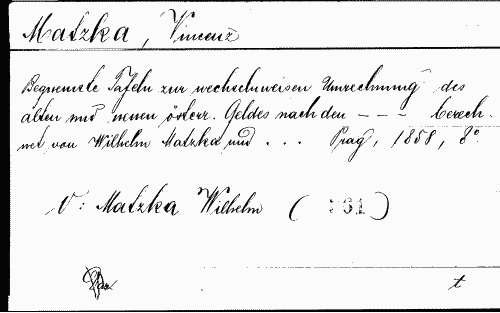 Matzka, Vincenz
Bequemste Tafeln zur wechselweisen Umrechnung des
alten und neuen österr. Geldes nach den - - - berech-
net von Wilhelm Matzka und . . . Prag, 1858, 8°.
V: Matzka Wilhelm ( 361 )
t